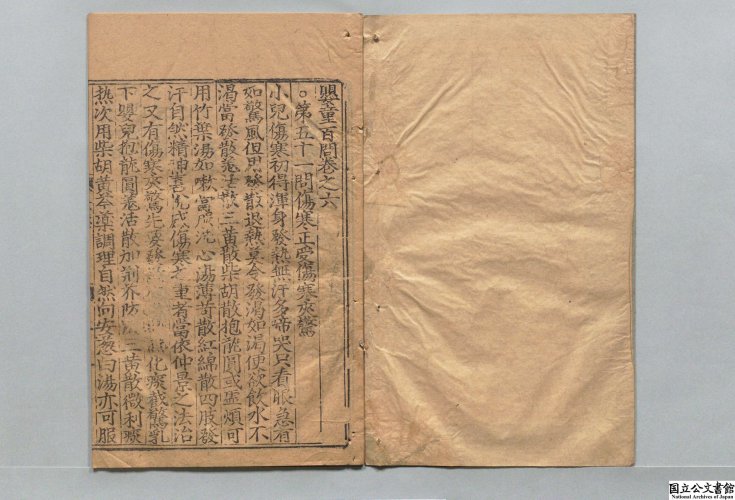 嬰童百問卷之六
○第五十一問傷寒正受傷寒夾驚
小兒傷寒初得渾身發熱無汗多啼哭只看眼急有
如驚風但用發散退熱莫令發渴如渴便欲飲水不
渴當發散羌活散三黃散柴胡散抱龍圓或虛煩可
用竹葉湯如嗽當服洗心湯薄荷散紅綿散四肢發
汗自然精神 傷寒之重者當依仲景之法治
之又有傷寒夾驚先 化痰 驚
下嬰兒抱龍圓羌活散加荊芥防 三黃散微利
熱次用柴胡黃芩藥調理自然向安葱白湯亦可服
国立公文書館
National Archives of Japan